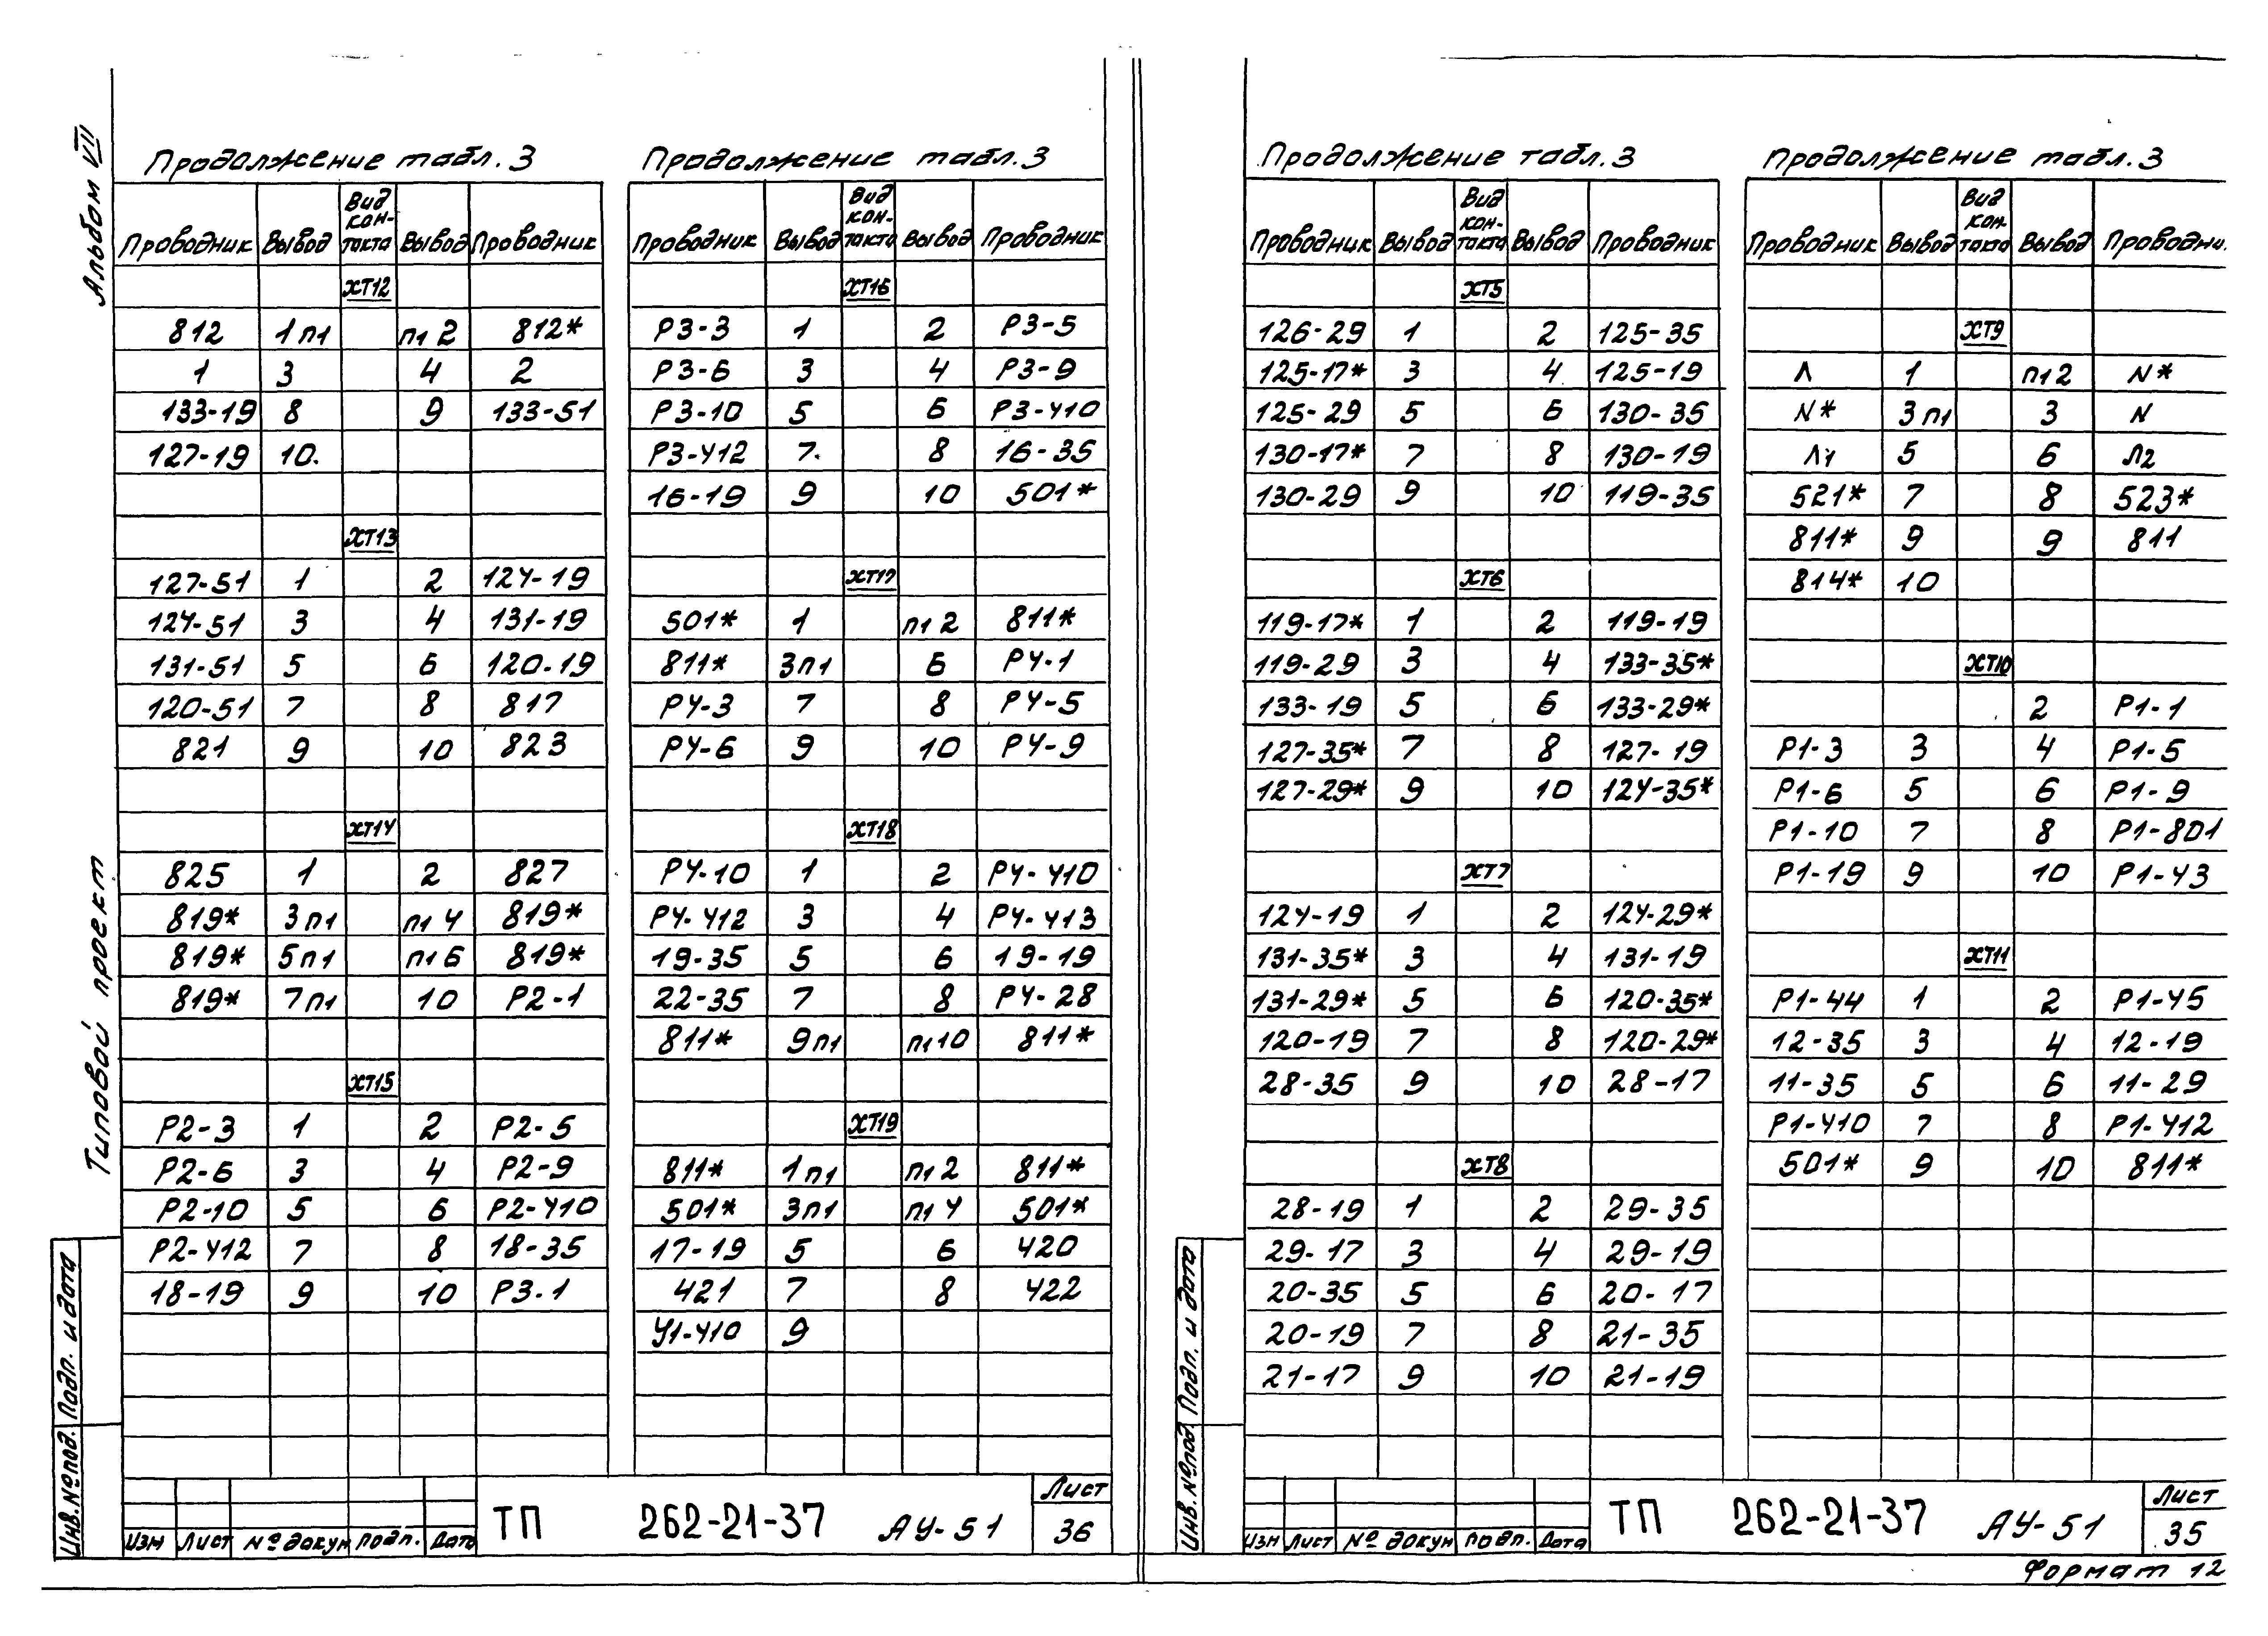 Альбом VII
Типовой проект
Продолжение табл. 3
Проводник Вывод Вид кон-такта Вывод Проводник
ХТ12
812 1п1 п12 812*
1 3 4 2
133-19 8 9 133-51
127-19 10.
ХТ13
127-51 1 2 124-19
124-51 3 4 131-19
131-51 5 6 120-19
120-51 7 8 817
821 9 10 823
ХТ14
825 1 2 827
819* 3п1 п14 819*
819* 5п1 п16 819*
819* 7п1 10 Р2-1
ХТ15
Р2-3 1 2 Р2-5
Р2-6 3 4 Р2-9
Р2-10 5 6 Р2-410
Р2-412 7 8 18-35
18-19 9 10 Р3-1
Продолжение табл. 3
Проводник Вывод Вид кон-такта Вывод Проводник
ХТ16
Р3-3 1 2 Р3-5
Р3-6 3 4 Р3-9
Р3-10 5 6 Р3-410
Р3-412 7. 8 16-35
16-19 9 10 501*
ХТ17
501* 1 п12 811*
811* 3п1 6 Р4-1
Р4-3 7 8 Р4-5
Р4-6 9 10 Р4-9
ХТ18
Р4-10 1 2 Р4-410
Р4-412 3 4 Р4-413
19-35 5 6 19-19
22-35 7 8 Р4-28
811* 9п1 п110 811*
ХТ19
811* 1п1 п12 811*
501* 3п1 п14 501*
17-19 5 6 420
421 7 8 422
У1-410 9
Инв. № под. Подп. и дата
Изм Лист № докум Подп. Дата
ТП 262-21-37 АУ-51
Лист
36
Продолжение табл. 3
Проводник Вывод Вид кон-такта Вывод Проводник
ХТ5
126-29 1 2 125-35
125-17* 3 4 125-19
125-29 5 6 130-35
130-17* 7 8 130-19
130-29 9 10 119-35
ХТ6
119-17* 1 2 119-19
119-29 3 4 133-35*
133-19 5 6 133-29*
127-35* 7 8 127-19
127-29* 9 10 124-35*
ХТ7
124-19 1 2 124-29*
131-35* 3 4 131-19
131-29* 5 6 120-35*
120-19 7 8 120-29*
28-35 9 10 28-17
ХТ8
28-19 1 2 29-35
29-17 3 4 29-19
20-35 5 6 20-17
20-19 7 8 21-35
21-17 9 10 21-19
Продолжение табл. 3
Проводник Вывод Вид кон-такта Вывод Проводни.
ХТ9
Л 1 п12 N*
N* 3п1 3 N
Л1 5 6 Л2
521* 7 8 523*
811* 9 9 811
814* 10
ХТ10
2 Р1-1
Р1-3 3 4 Р1-5
Р1-6 5 6 Р1-9
Р1-10 7 8 Р1-801
Р1-19 9 10 Р1-43
ХТ11
Р1-44 1 2 Р1-45
12-35 3 4 12-19
11-35 5 6 11-29
Р1-410 7 8 Р1-412
501* 9 10 811*
Инв. № под. Подп. и дата
Изм Лист № докум Подп. Дата
ТП 262-21-37 АУ-51
Лист
35
Формат 12